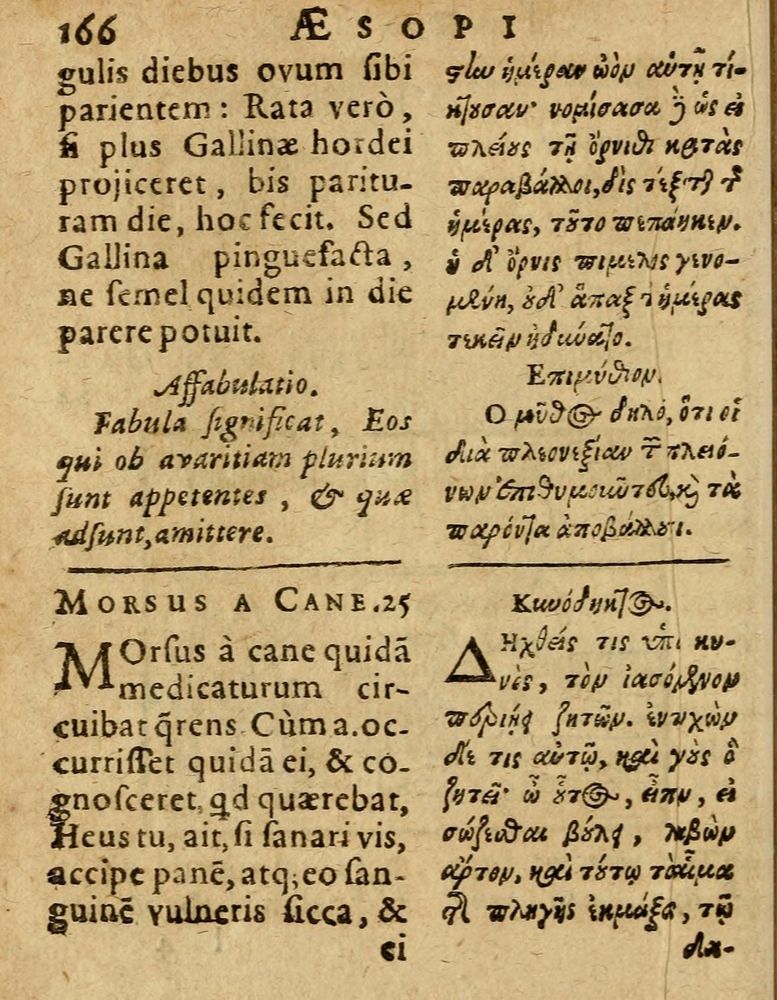 166 ÆSOPI
gulis diebus ovum sibi
parientem: Rata verò,
si plus Gallinæ hordei
projiceret, bis paritu-
ram die, hoc fecit. Sed
Gallina pinguefacta,
ne semel quidem in die
parere potuit.
Affabulatio.
Fabula significat, Eos
qui ob avaritiam plurium
sunt appetentes, & quæ
adsunt, amittere.
MORSUS A CANE. 25
MOrsus à cane quidã
medicaturum cir-
cuibat q̃rens. Cùm a. oc-
currisset quidã ei, & co-
gnosceret, qd quærebat,
Heus tu, ait, si sanari vis,
accipe panẽ, atq; eo san-
guinẽ vulneris sicca, &
ei
στην ἡμέραν ὠὸν αὐτῇ τί-
κτουσαν· νομίσασα δὲ ὡς εἰ
πλείους τῇ ὄρνιθι κριθὰς
παραβάλλοι, δὶς τέξεται τῆς
ἡμέρας, τοῦτο πεποίηκεν.
ἡ δ' ὄρνις πιμελὴς γενο-
μένη, οὐδ' ἅπαξ τῆς ἡμέρας
τεκεῖν ἠδύνατο.
Επιμύθιον.
Ο μῦθος δηλοῖ, ὅτι οἱ
διὰ πλεονεξίαν τῶν πλειό-
νων ἐπιθυμοῦντες, καὶ τὰ
παρόντα ἀποβάλλουσι.
Κυνόδηκτος.
ΔΗχθείς τις ὑπὸ κυ-
νὸς, τὸν ἰασόμενον
περιῄει ζητῶν. ἐντυχὼν
δέ τις αὐτῷ, καὶ γνοὺς ὃ
ζητεῖ· ὦ οὗτος, εἶπεν, εἰ
σώζεσθαι βούλει, λαβὼν
ἄρτον, καὶ τούτῳ τὸ αἷμα
τῆς πληγῆς ἐκμάξας, τῷ
δα-